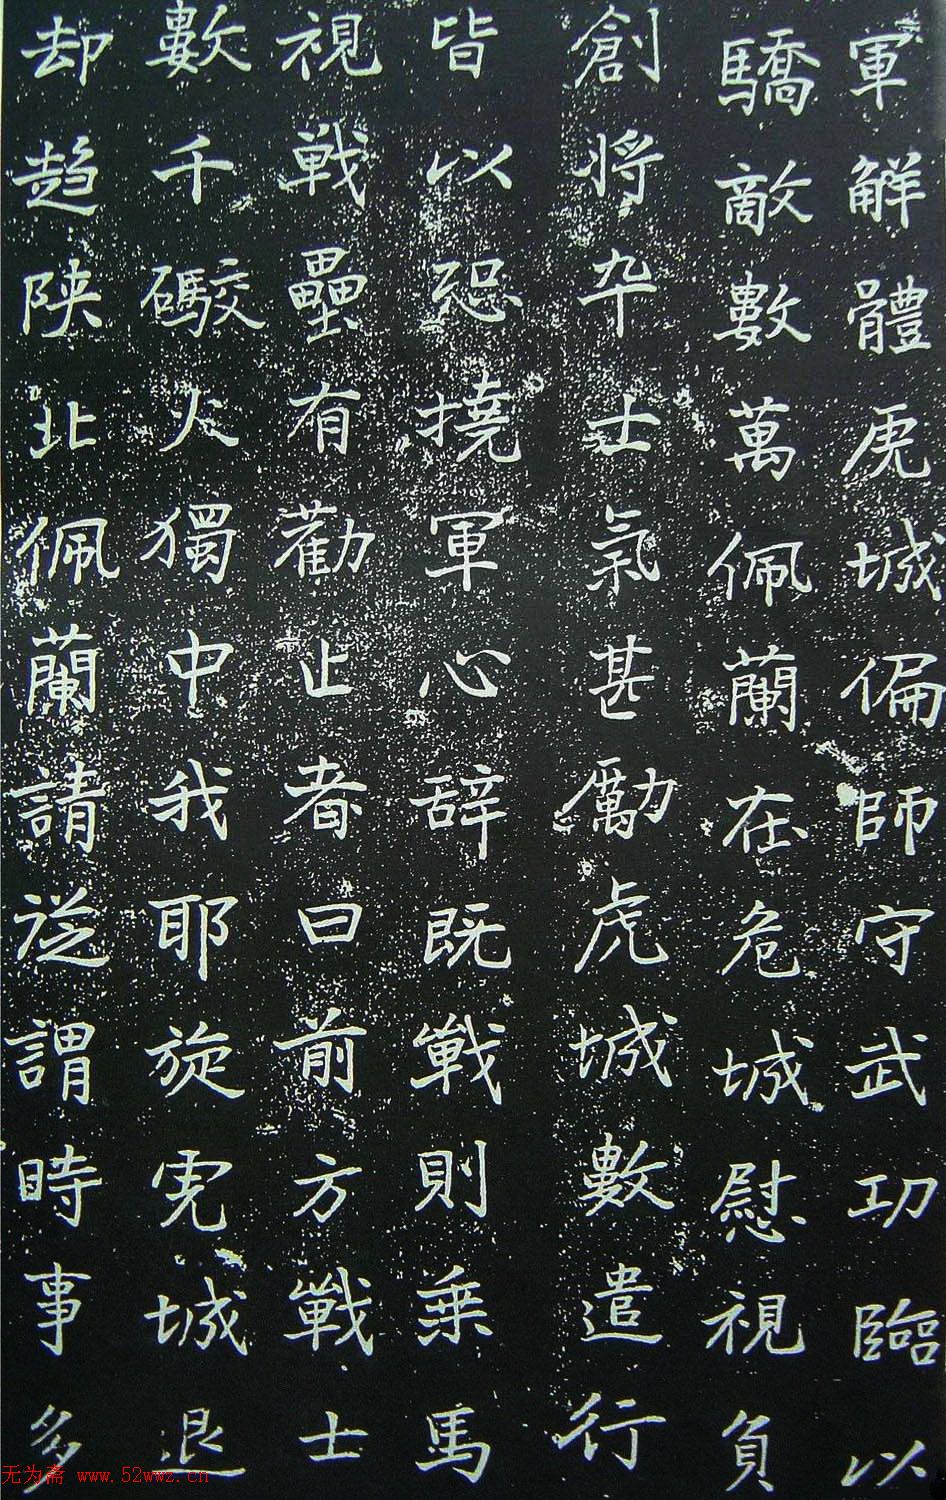 軍解體虎城偏師守武功臨以
驕敵數萬佩蘭在危城慰視負
創將卒士氣甚勵虎城數遣行
皆以恐撓軍心辞既戰則乘馬
視戰壘有勸止者曰前方戰士
數千礮火獨中我耶旋虎城退
却趋陕北佩蘭請從謂時事多
无为斋 www.52wwz.cn